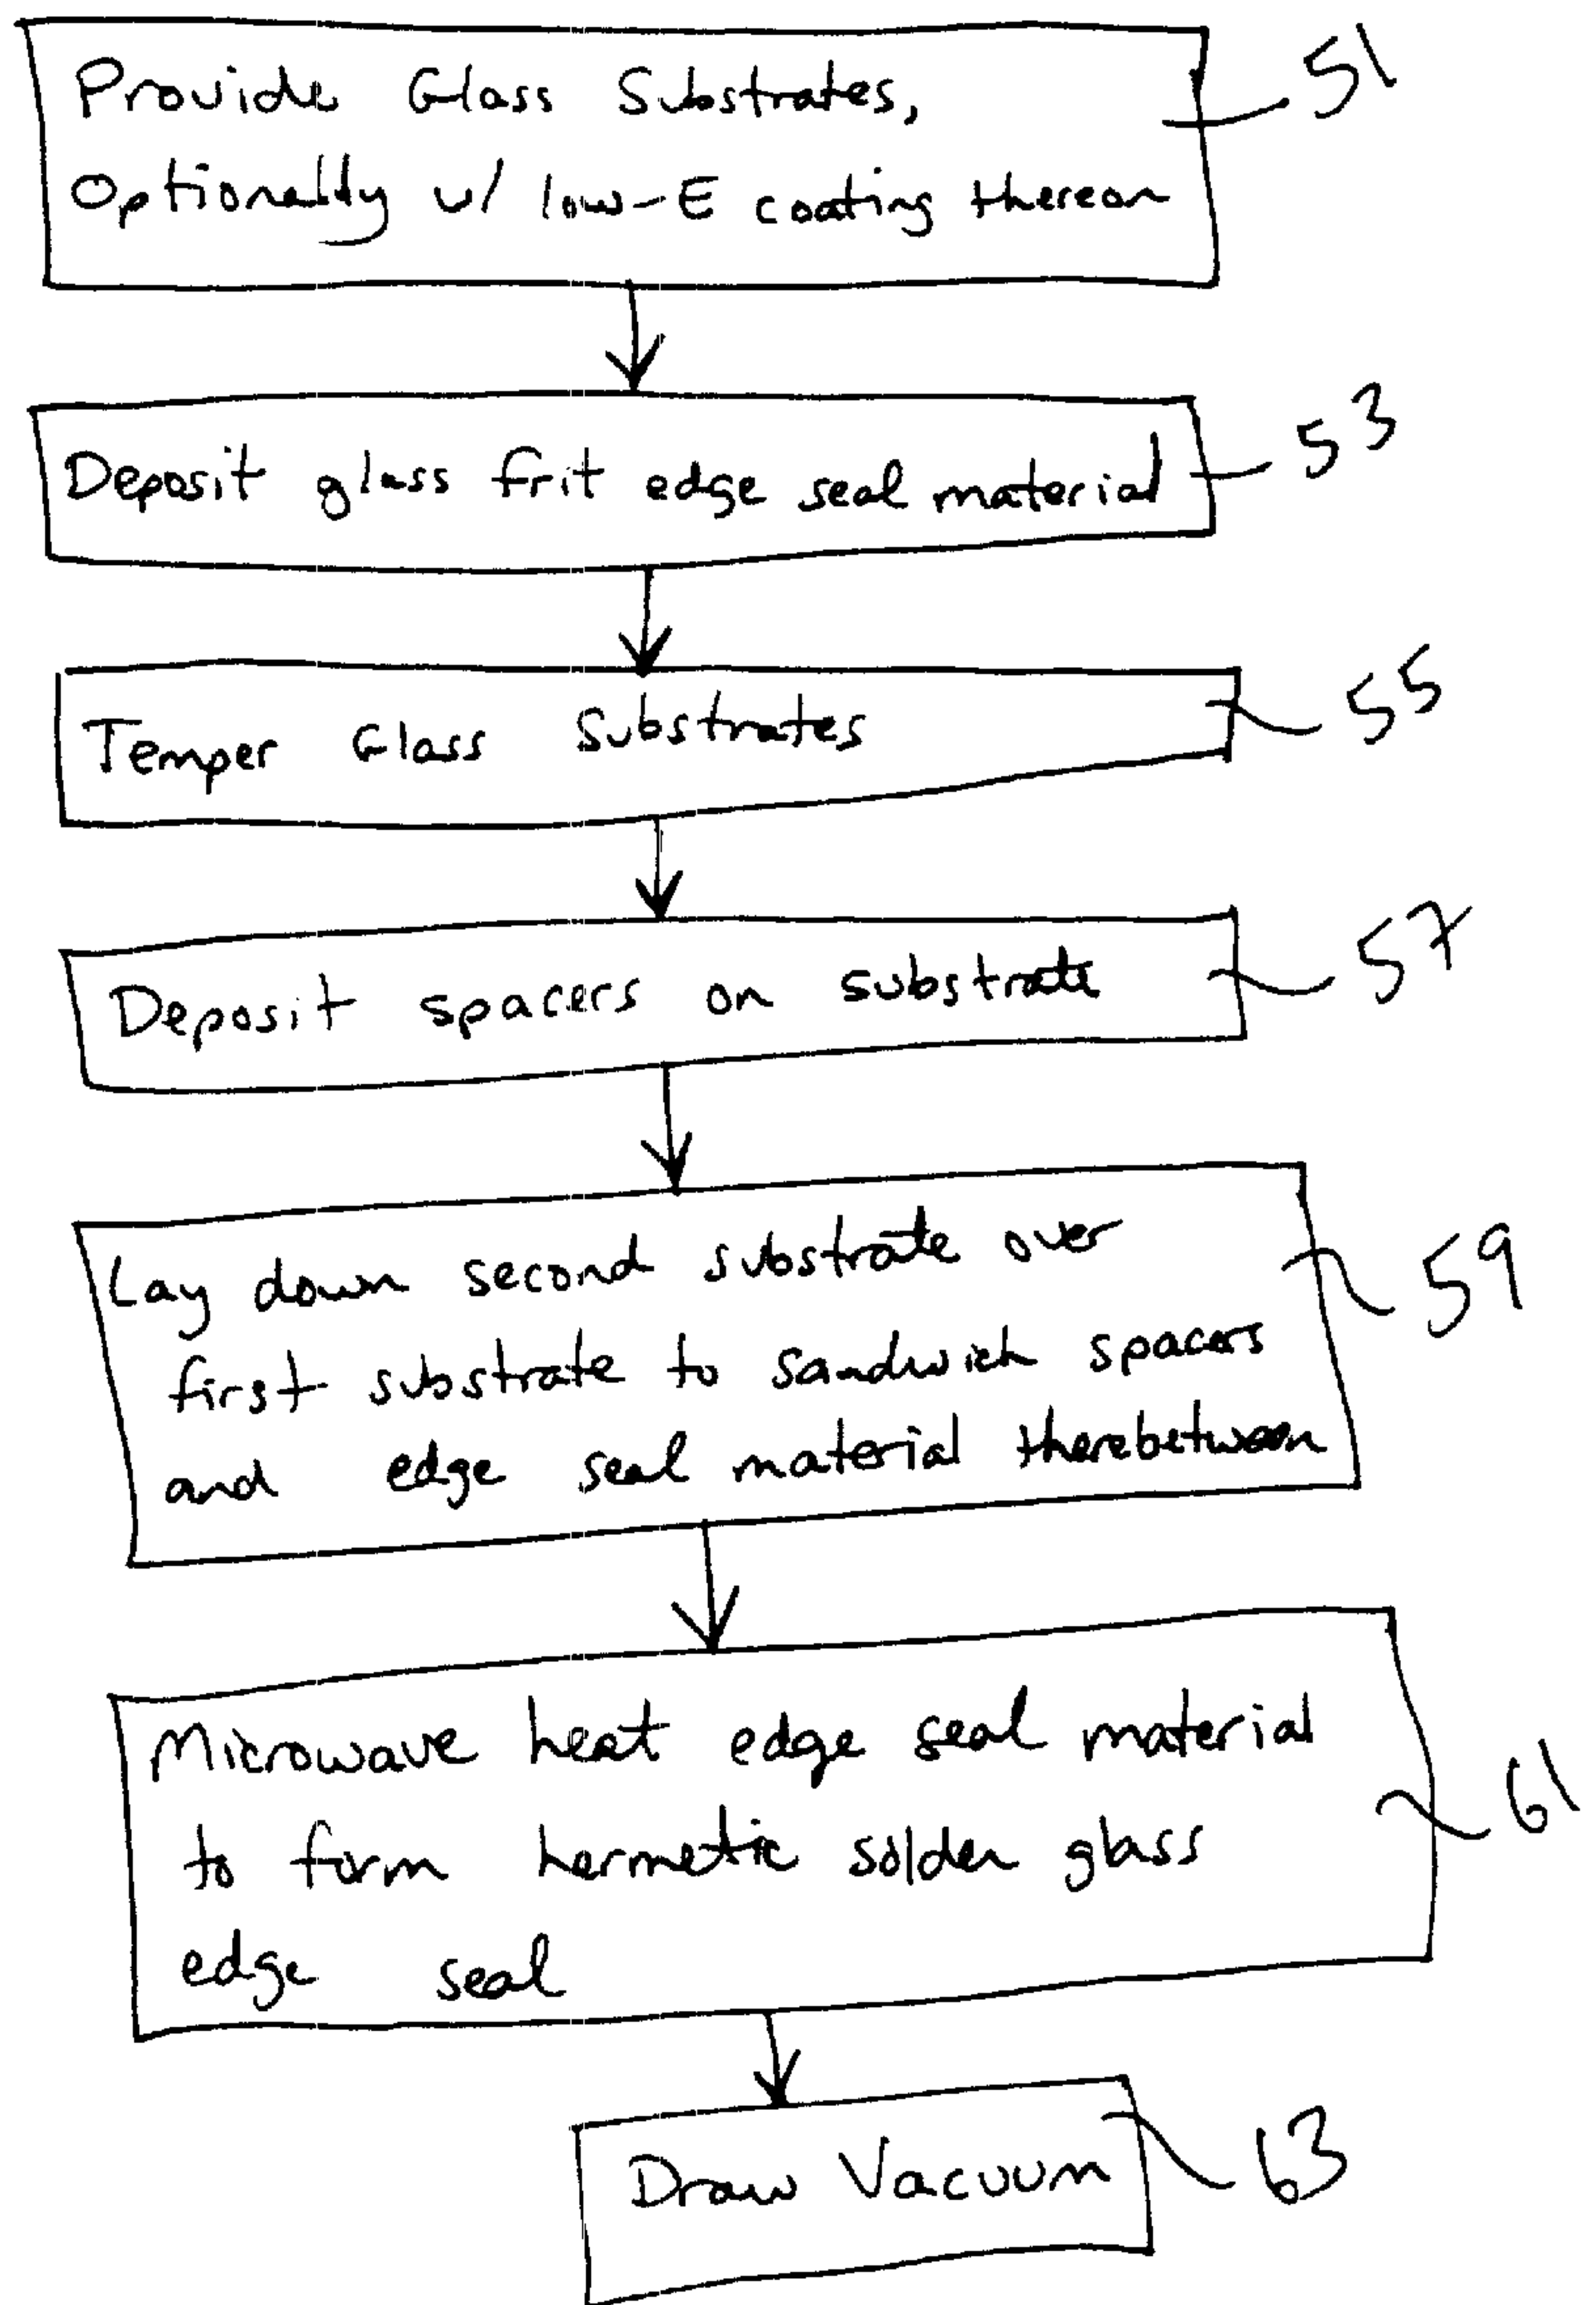 Provide Glass Substrates,
Optionally w/ low-E coating thereon
51
Deposit glass frit edge seal material
53
Temper Glass Substrates
55
Deposit spacers on substrate
57
Lay down second substrate over
first substrate to sandwich spacers
and edge seal material therebetween
59
Microwave heat edge seal material
to form hermetic solder glass
edge seal
61
Draw Vacuum
63